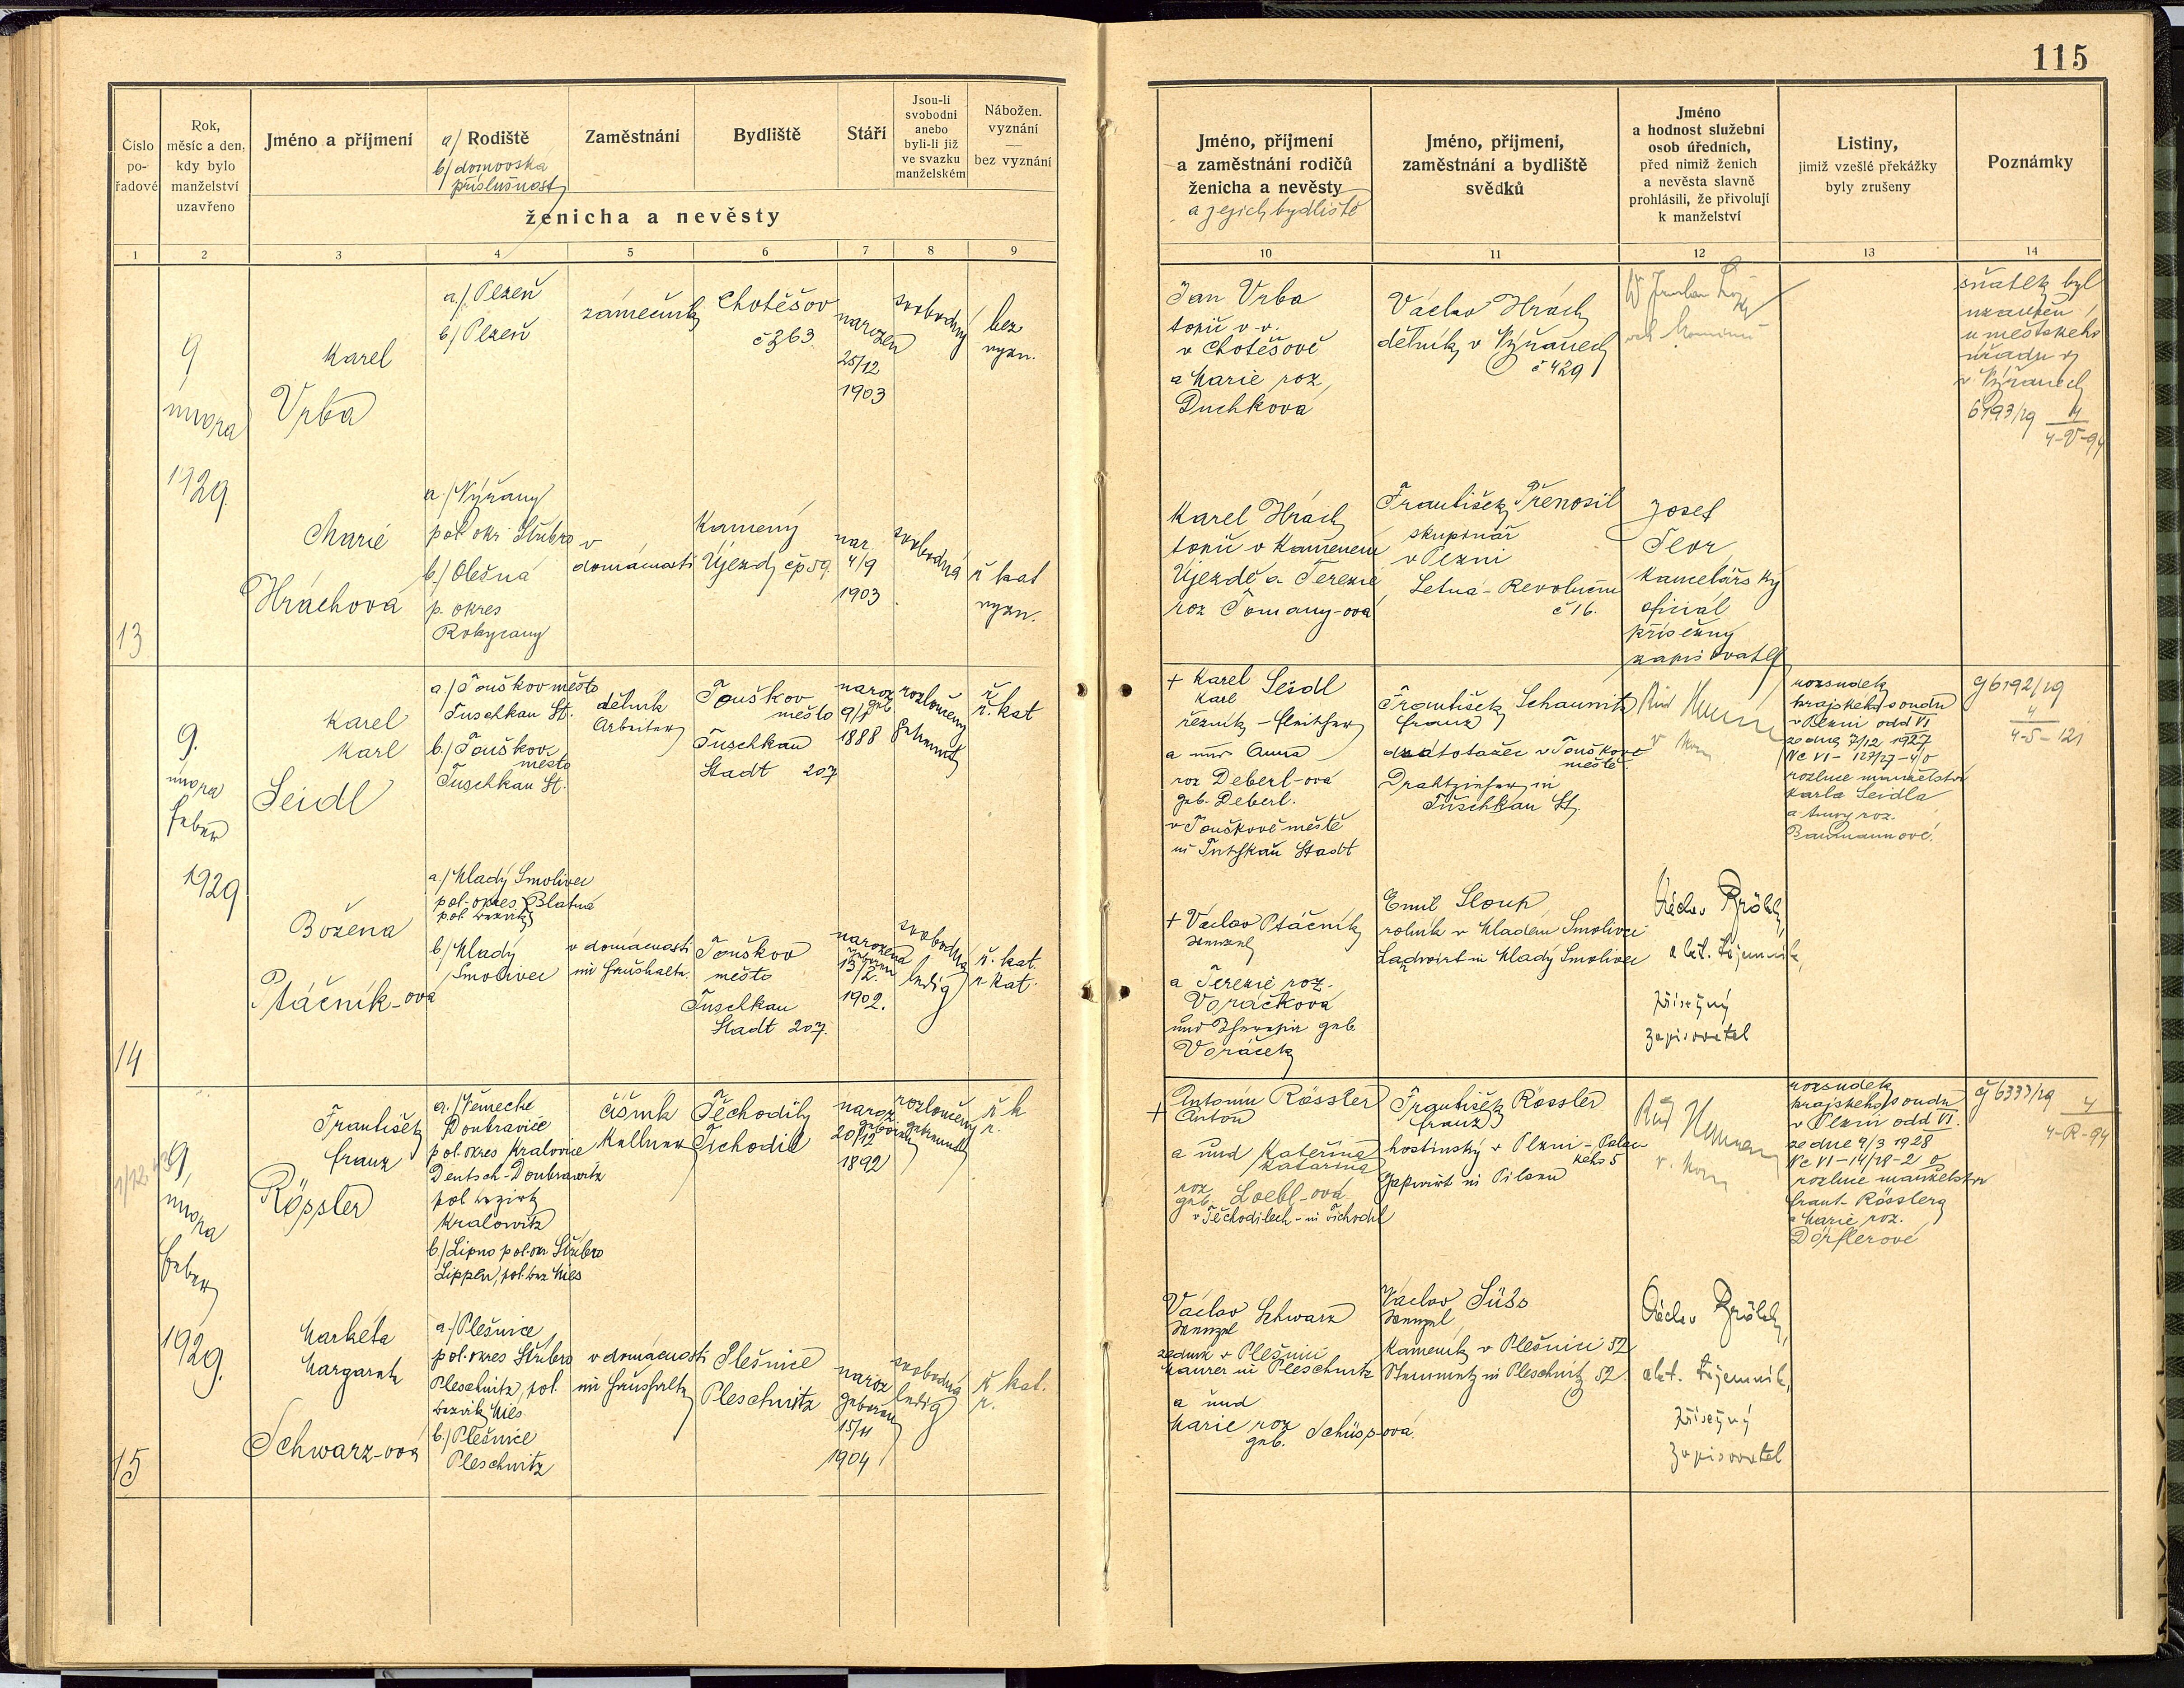 115
Číslo po-řadové
Rok, měsíc a den, kdy bylo manželství uzavřeno
Jméno a příjmení
a/ Rodiště
b/ domovská příslušnost
Zaměstnání
Bydliště
Stáří
Jsou-li svobodni anebo byli-li již ve svazku manželském
Nábožen. vyznání — bez vyznání
ženicha a nevěsty
Jméno, příjmení a zaměstnání rodičů ženicha a nevěsty
a jejich bydliště
Jméno, příjmení, zaměstnání a bydliště svědků
Jméno a hodnost služební osob úředních, před nimiž ženich a nevěsta slavně prohlásili, že přivolují k manželství
Listiny, jimiž vzešlé překážky byly zrušeny
Poznámky
1 2 3 4 5 6 7 8 9 10 11 12 13 14
13
9
února
1929.
Karel
Vrba
a./ Plzeň
b/ Plzeň
zámečník
Chotěšov
č 263.
narozen
25/12
1903
svobodný
bez
vyzn.
Jan Vrba
topič v. v.
v Chotěšově
a Marie roz.
Duchková
Václav Hrách
dělník v Nýřanech
č 429
sňatek byl
uzavřen
u městského
úřadu
v Nýřanech
6193/29 4
4-V-94
Marie
Hráchová
a./ Nýřany
pol. okr. Stříbro
b./ Olešná
p. okres
Rokycany
v
domácnosti
Kamený
Újezd čp 59.
nar.
4/9
1903
svobodná
ř kat
vyzn.
Karel Hrách
topič v Kameném
Újezdě a Terezie
roz Tomany-ová
František Přenosil
skupinář
v Plzni
Letná - Revoluční
č 16.
Josef
Flor
kancelářský
oficiál
přísežný
zapisovatel
14
9.
února
Feber
1929
Karel
Karl
Seidl
a./ Touškov město
Tuschkau St.
b./ Touškov
město
Tuschkau St.
dělník
Arbeiter
Touškov
město
Tuschkau
Stadt 207
naroz
geb
9/1
1888
rozloučený
getrennt
ř.
r. kat
+ Karel Seidl
Karl
řezník - Fleischer
a und Anna
roz Deberl-ová
geb. Deberl.
v Touškově městě
in Tuschkau Stadt
František Schaunitz
Franz
drátotažec v Touškově
městě
Drahtzieher in
Tuschkau St.
rozsudek
krajského soudu
v Plzni odd VI
ze dne 7/12 1927
Nc VI - 127/27-4/0
rozluce manželství
Karla Seidla
a Anny roz.
Baumannové.
9 6192/29
4
4-S-121
Božena
Ptáčník-ová
a./ Mladý Smolivec
pol. okres Blatná
pol. Bezirk
b/ Mladý
Smolivec
v domácnosti
im Haushalte.
Touškov
město
Tuschkau
Stadt 207.
narozena
geboren
13/2.
1902.
svobodná
ledig
ř. kat.
r. kat.
+ Václav Ptáčník
Wenzel
a Terezie roz.
Voráčková
und Theresia geb.
Voráček
Emil Sloup
rolník v Mladém Smolivci
Landwirt in Mladý Smolivec
Václav Brölek,
akt. tajemník,
přísežný
zapisovatel
15
9
února
Feber
1929.
František
Franz
Rössler
a./ Německé
Doubravice
pol. okres Kralovice
Deutsch-Doubrawitz
pol bezirk
Kralowitz
b./ Lipno pol. okr Stříbro
Lippen, pol. bez Mies
číšník
Kellner
Těchodily
Tschodil
naroz
geboren
20/12
1892
rozloučený
getrennt
ř k
r.
+ Antonín Rössler
Anton
a und Kateřina
Katarina
roz
geb. Loebl-ová
v Těchodilech - in Tschodil
František Rössler
Franz
hostinský v Plzni - Palac
kého 5
Gastwirt in Pilsen
rozsudek
krajského soudu
v Plzni odd VI.
ze dne 9/3 1928
Nc VI - 14/28-2
rozluce manželství
Frant. Rösslera
a Marie roz.
Dörflerové
9 6333/29 4
4-R-94
Markéta
Margareta
Schwarz-ová
a./ Plešnice
pol. okres Stříbro
Pleschnitz, pol.
bezirk Mies
b./ Plešnice
Pleschnitz
v domácnosti
im Haushalte
Plešnice
Pleschnitz
naroz
geboren
15/11
1904
svobodná
ledig
ř kat.
r.
Václav Schwarz
Wenzel
zedník v Plešnici
Maurer in Pleschnitz
a und
Marie roz
geb. Schüss-ová.
Václav Süss
Wenzel
kameník v Plešnici 52
Steinmetz in Pleschnitz 52.
Václav Brölek,
akt. tajemník,
přísežný
zapisovatel